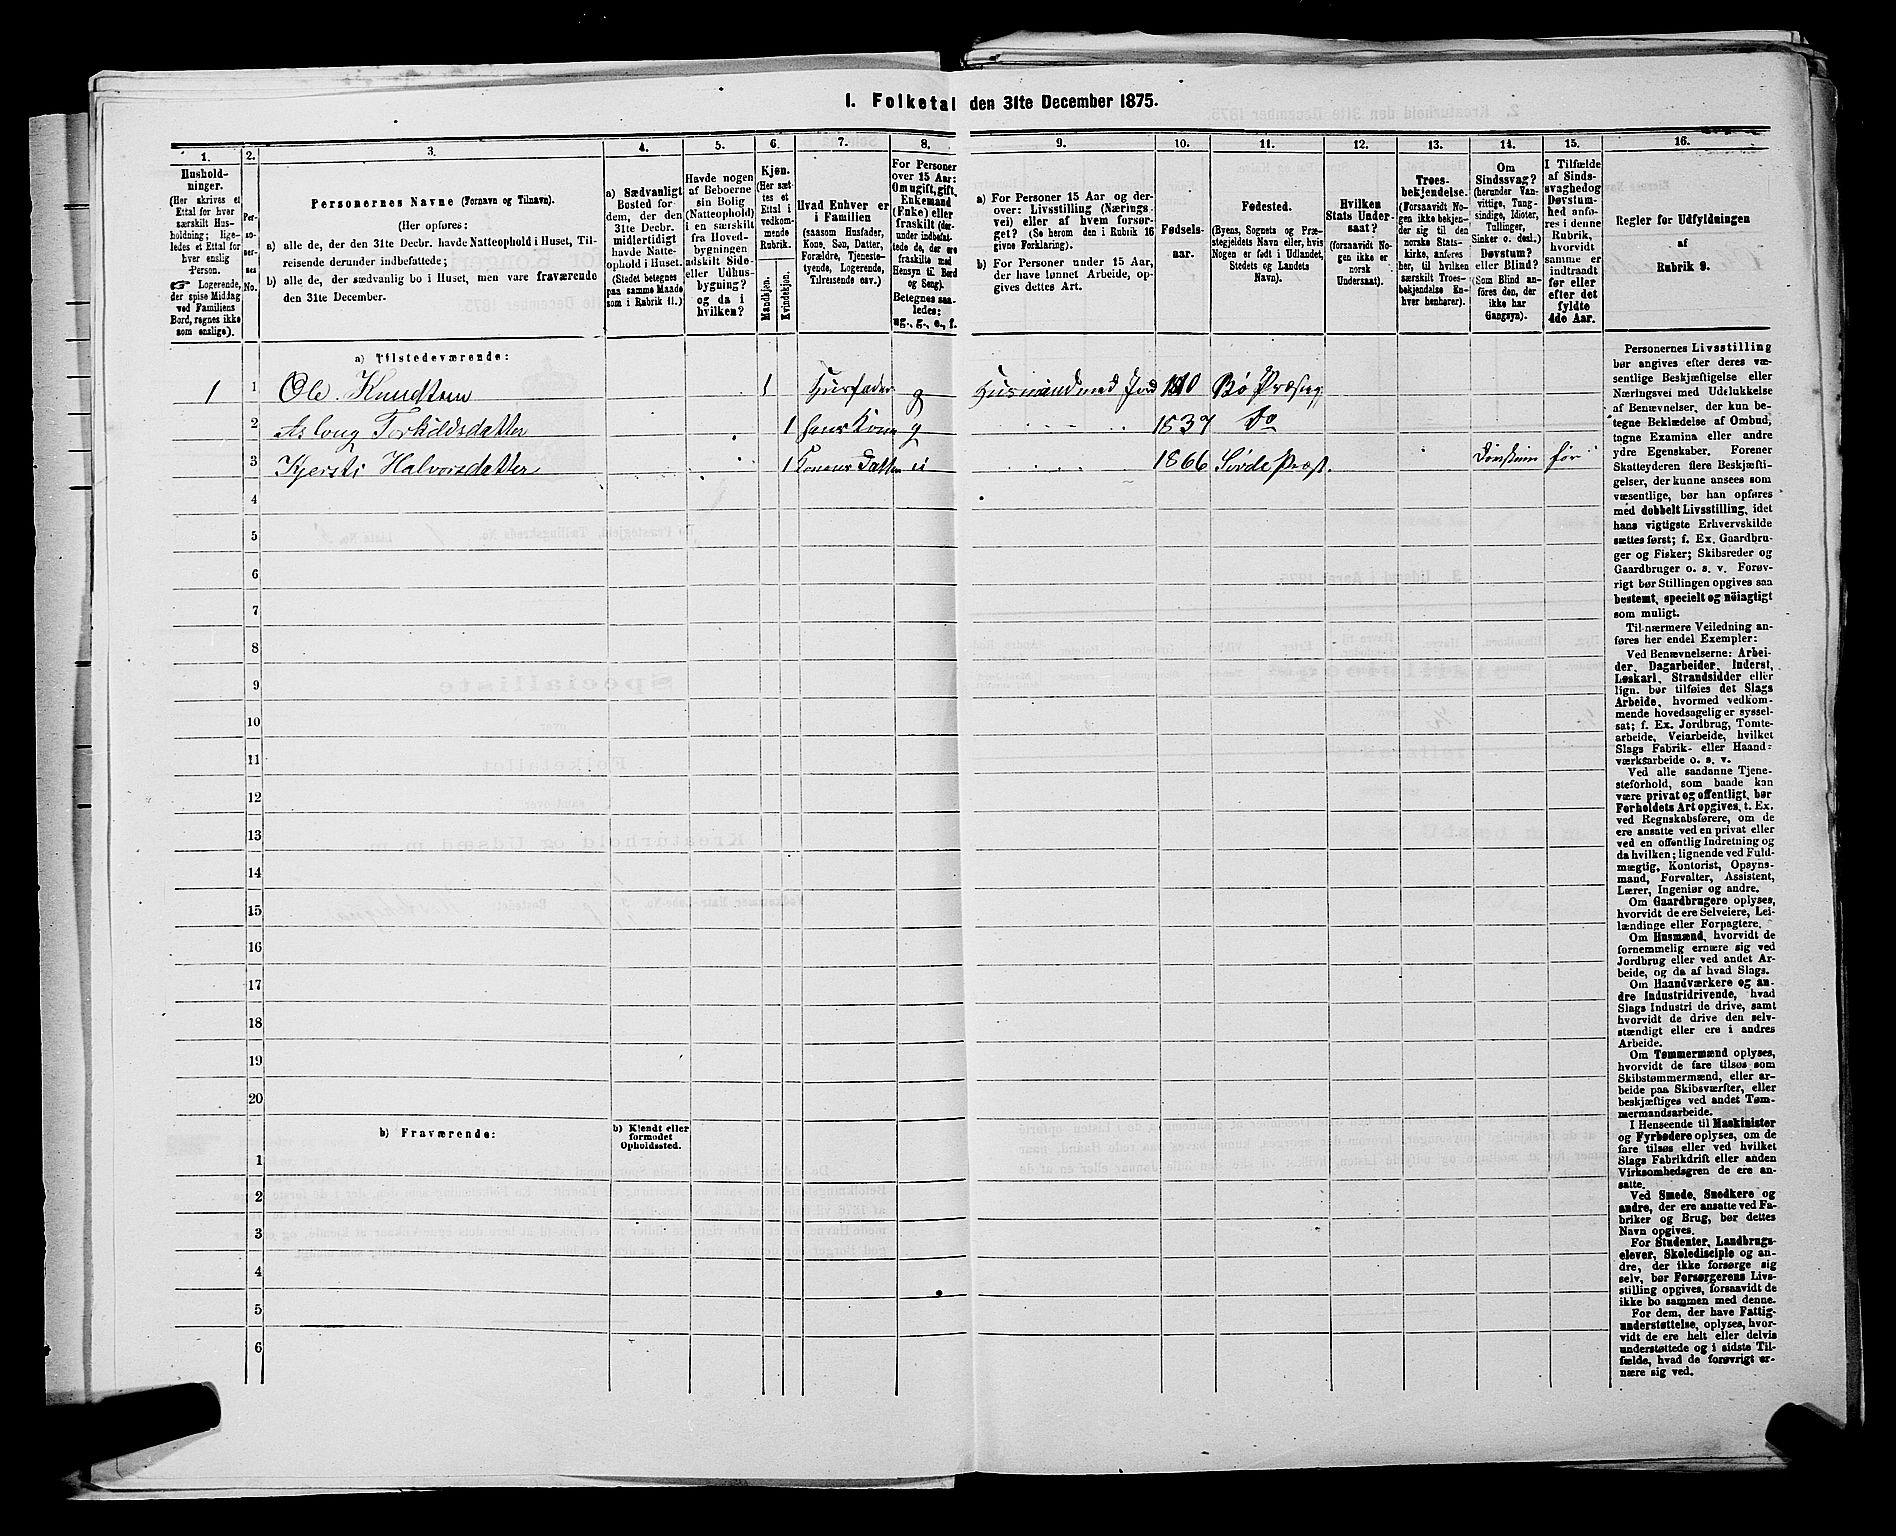 1. Folketal den 31te December 1875.
1.
Hushold-
ninger.
(Her skrives et
Ettal for hver
særskilt Hus-
holdning; lige-
ledes et Ettal for
hver enslig
Person.
☞ Logerende,
der spise Middag
ved Familiens
Bord, regnes ikke
som enslige).
2.
Per-
so-
ner-
nes
No.
3.
Personernes Navne (Fornavn og Tilnavn).
(Her opføres:
a) alle de, der den 31te Decbr. havde Natteophold i Huset, Til-
reisende derunder indbefattede;
b) alle de, der sædvanlig bo i Huset, men vare fraværende
den 31te December.
4.
a) Sædvanligt
Bosted for-
dem, der den
31te Decbr.
midlertidigt
havde Natte-
ophold i Huset.
(Stedet betegnes
paa samme Maade
som i Rubrik 11.)
5.
Havde nogen
af Beboerne
sin Bolig
(Natteophold)
i en særskilt
fra Hoved-
bygningen
adskilt Side-
eller Udhus-
bygning?
og da i
hvilken?
6.
Kjøn.
(Her sæt-
tes et
Ettal i
vedkom-
mende
Rubrik.
Mandkjøn.
Kvindekjøn.
7.
Hvad Enhver er
i Familien
(saasom Husfader,
Kone, Søn, Datter,
Forældre, Tjeneste-
tyende, Logerende,
Tilreisende osv.)
8.
For Personer
over 15 Aar:
Om ugift, gift,
Enkemand
(Enke) eller
fraskilt (der-
under indbefat-
tede de, der ere
fraskilte med
Hensyn til Bord
og Seng).
Betegnes saa-
ledes:
ug., g., e., f.
9.
a) For Personer 15 Aar og der-
over: Livsstilling (Nærings-
vei) eller af hvem forsør-
get? (Se herom den i Rubrik 16
givne Forklaring).
b) For Personer under 15 Aar,
der have lønnet Arbeide, op-
gives dettes Art.
10.
Fødsels-
aar.
11.
Fødested.
(Byens, Sognets og Præ-
stegjeldets Navn eller, hvis
Nogen er født i Udlandet,
Stedets og Landets
Navn).
12.
Hvilken
Stats Under-
saat?
(forsaavidt No-
gen ikke er
norsk
Undersaat).
13.
Troes-
bekjendelse.
(Forsaavidt No-
gen ikke bekjen-
der sig til den
norske Stats-
kirke, anføres
her, til hvilken
særskilt Troes-
bekjendelse En-
hver henhører).
14.
Om
Sindssvag?
(herunder Van-
vittige, Tung-
sindige, Idioter,
Tullinger,
Sinker o. desl.)
Døvstum?
eller Blind?
(Som Blind an-
føres den, der
ikke har
Gangsyn).
15.
I Tilfælde
af Sinds-
svaghed og
Døvstum-
hed anfø-
res i denne
Rubrik,
hvorvidt
samme er
indtraadt
før eller
efter det
fyldte
4de Aar.
16.
Regler for Udfyldningen
af
Rubrik 9.
a) Tilstedeværende:
1 1 Ole Knudtsen 1 Husfader g Husmand med Jord Bø Præstg
2 Aslaug Torkildsdatter 1 hans Kone g 1837 Do
3 Kjersti Halvorsdatter 1 Konens Datter 1866 Søvde Præst. Døvstum før
4
5
6
7
8
9
10
11
12
13
14
15
16
17
18
19
20
b) Fraværende:
b) Kjendt eller
formodet
Opholdssted.
1
2
3
4
5
6
Personernes Livsstilling
bør angives efter deres væ-
sentlige Beskjæftigelse eller
Næringsvei med Udelukkelse
af Benævnelser, der kun be-
tegne Beklædelse af Ombud,
tagne Examina eller andre
ydre Egenskaber. Forener
Skatteyderen flere Beskjæfti-
gelser, der kunne ansees som
væsentlige, bør han opføres
med dobbelt Livsstilling, idet
hans vigtigste Erhvervskilde
sættes først; f. Ex. Gaardbru-
ger og Fisker; Skibsreder og
Gaardbruger o. s. v. Forøv-
rigt bør Stillingen opgives saa
bestemt, specielt og nöiagtigt
som muligt.
Til nærmere Veiledning an-
føres her endel Exempler:
Ved Benævnelserne: Arbei-
der, Dagarbeider, Inderst,
Løskarl, Strandsidder eller
lign. bør tilføies det Slags
Arbeide, hvormed vedkom-
mende hovedsagelig er syssel-
sat; f. Ex. Jordbrug, Tomte-
arbeide, Veiarbeide, hvilket
Slags Fabrik- eller Haand-
værksarbeide o. s. v.
Ved alle saadanne Tjene-
steforhold, som baade kan
være privat og offentligt, bør
Forholdets Art opgives, t. Ex.
ved Regnskabsførere, om de
ere ansatte ved en privat eller
ved en offentlig Indretning og
da hvilken; lignende ved Fuld-
mægtig, Kontorist, Opsyns-
mand, Forvalter, Assistent,
Lærer, Ingeniør og andre.
Om Gaardbrugere oplyses,
hvorvidt de ere Selveiere, Lei-
lændinge eller Forpagtere.
Om Husmænd, hvorvidt de
fornemmelig ernære sig ved
Jordbrug eller ved andet Ar-
beide, og da af hvad Slags.
Om Haandværkere og an-
dre Industridrivende, hvad
Slags Industri de drive, samt
hvorvidt de drive den selv-
stændigt eller ere i andres
Arbeide.
Om Tømmermænd oplyses,
hvorvidt de fare tilsøs som
Skibstømmermænd, eller ar-
beide paa Skibsværfter, eller
beskjæftiges ved andet Tøm-
mermandsarbeide.
I Henseende til Maskinister
og Fyrbødere oplyses, om de
fare tilsøs eller ved hvilket
Slags Fabrikdrift eller anden
Virksomhedsgren de ere an-
satte.
Ved Smede, Snedkere og
andre, der ere ansatte ved Fa-
briker og Brug, bør dettes
Navn opgives.
For Studenter, Landbrugs-
elever, Skoledisciple og an-
dre, der ikke forsørge sig
selv, bør Forsørgerens Livs-
stilling opgives, forsaavidt de
ikke bo sammen med denne.
For dem, der have Fattig-
understøttelse, oplyses, hvor-
vidt de ere helt eller delvis
understøttede og i sidste Til-
fælde, hvad de forøvrigt er-
nære sig ved.